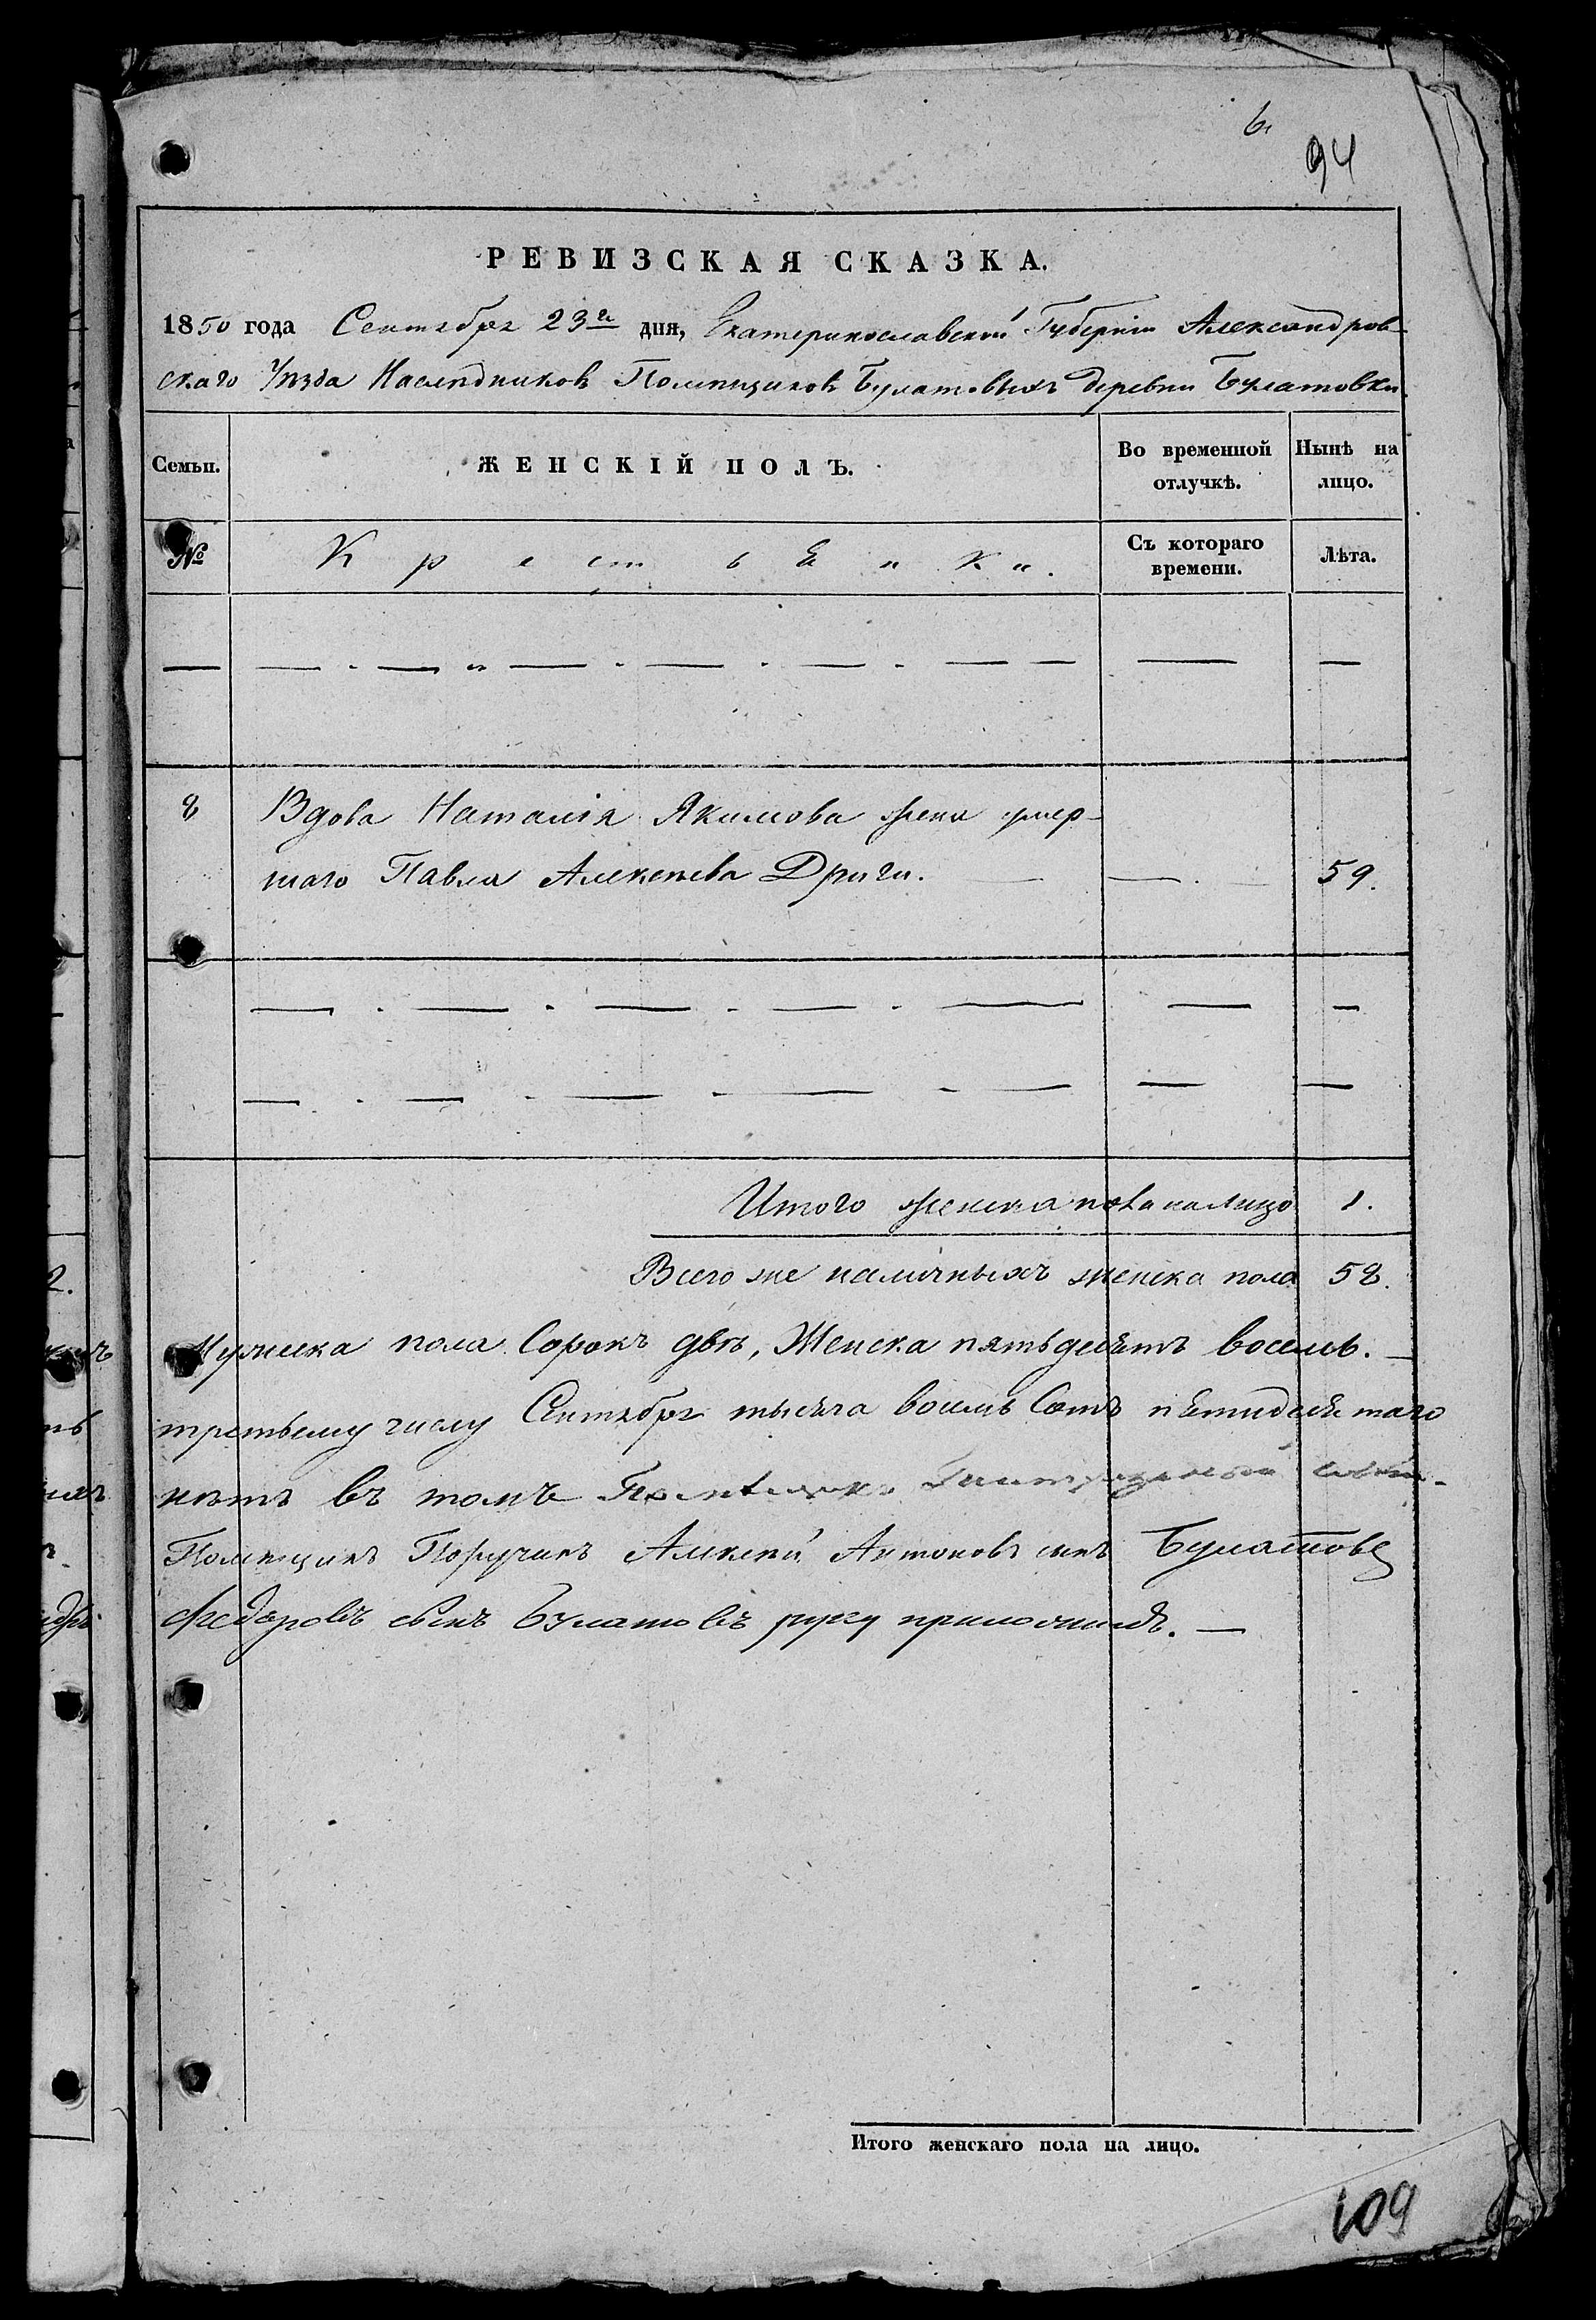 6.
94
РЕВИЗСКАЯ СКАЗКА.
1850 года Сентября 23го дня, Екатеринославской Губерніи Александров-
скаго Уѣзда Наслѣдниковъ Помѣщиковъ Булатовыхъ деревни Булатовки
Семьи. ЖЕНСКІЙ ПОЛЪ. Во временной отлучкѣ. Нынѣ на лицо.
№ Крестьянки. Съ котораго времени. Лѣта.
8 Вдова Наталія Якимова жена умер-
шаго Павла Алексѣева Дриги. 59.
Итого женска пола налицо 1.
Всего же наличныхъ женска пола 58.
Мужеска пола Сорокъ двѣ, Женска пятьдесятъ восемь. —
третьему числу Сентября тысяча восемь Сотъ пятидесятаго
нѣтъ въ томъ
Помѣщикъ Поручикъ Алексѣй Антоновъ сынъ Булатовъ
Федоровъ сынъ Булатовъ руку приложилъ. —
Итого женскаго пола на лицо.
109
2.